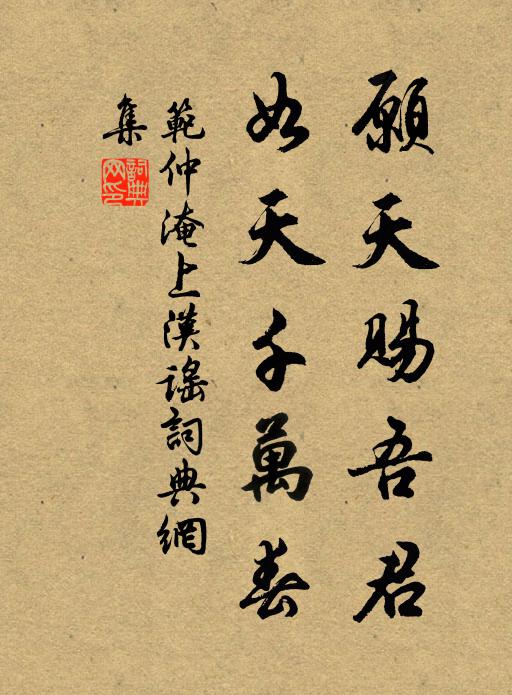 願天賜吾君
如天千萬春
範仲淹上漢謠詞典網
集
詞典網印